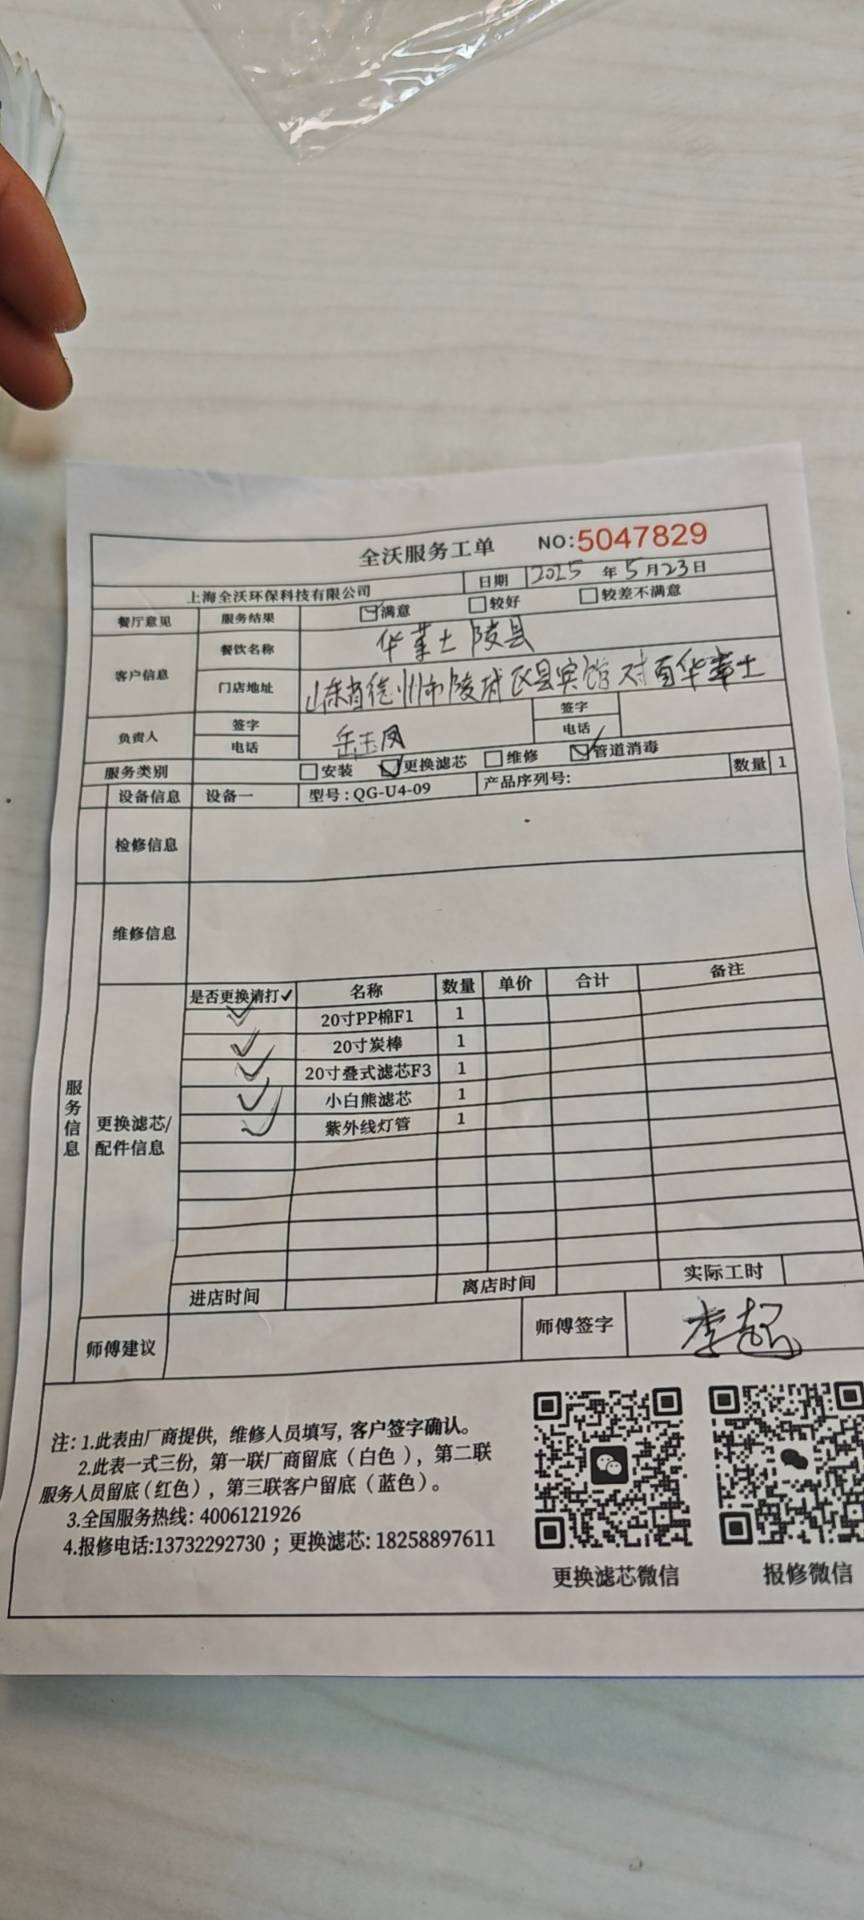 全沃服务工单 NO:5047829
上海全沃环保科技有限公司 日期 2025年5月23日
餐厅意见 服务结果 满意 较好 较差不满意
客户信息 餐饮名称 华莱士陵县
门店地址 山东省德州市陵城区县宾馆对面华莱士
负责人 签字 岳玉凤 签字
电话 电话
服务类别 安装 更换滤芯 维修 管道消毒
设备信息 设备一 型号:QG-U4-09 产品序列号: 数量 1
检修信息
维修信息
服务信息
更换滤芯/配件信息
是否更换请打✓ 名称 数量 单价 合计 备注
✓ 20寸PP棉F1 1
✓ 20寸炭棒 1
✓ 20寸叠式滤芯F3 1
✓ 小白熊滤芯 1
✓ 紫外线灯管 1
进店时间 离店时间 实际工时
师傅建议 师傅签字 李起
注: 1.此表由厂商提供，维修人员填写, 客户签字确认。
2.此表一式三份，第一联厂商留底（白色），第二联
服务人员留底(红色)，第三联客户留底（蓝色）。
3.全国服务热线: 4006121926
4.报修电话:13732292730 ；更换滤芯: 18258897611
更换滤芯微信 报修微信